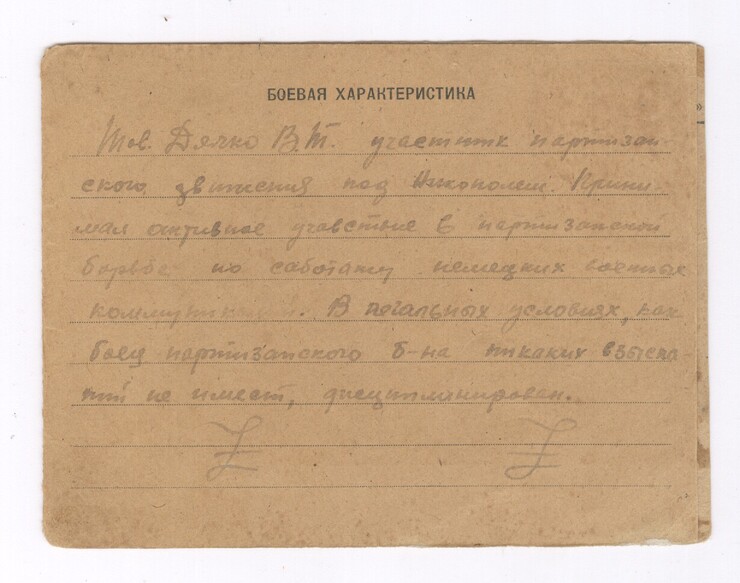 БОЕВАЯ ХАРАКТЕРИСТИКА
Тов. Дячко В.Т. участник партизан-
ского движения под Никополем. Прини-
мал активное учавствие в партизанской
борьбе по саботажу немецких военных
коммуникаций. В легальных условиях, как
боец партизанского б-на никаких взыска-
ний не имеет, дисциплинирован.
Z Z